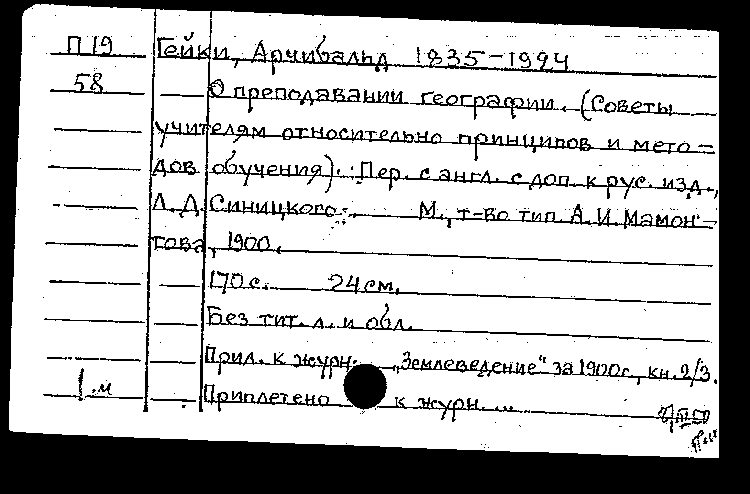 П19 Гейки, Арчибальд 1835-1924
58 О преподавании географии. (Советы
учителям относительно принципов и мето-
дов обучения). Пер. с англ. с доп. к рус. изд.,
Л. Д. Синицкого. М., т-во тип. А. И. Мамон-
това, 1900.
170 с. 24 см.
Без тит. л. и обл.
Прил. к журн. "Землеведение" за 1900 г., кн. 2/3.
1.м Приплетено к журн. ...